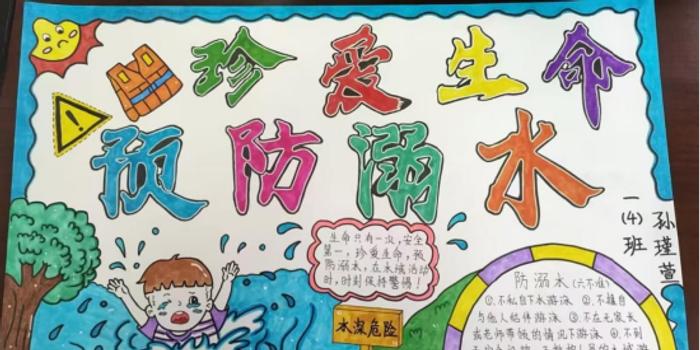 珍爱生命
预防溺水
一(4)班
孙瑾萱
生命只有一次,安全
第一,珍爱生命,预
防溺水,在水域活动
时,时刻保持警惕!
水深危险
防溺水(六不准)
①不私自下水游泳 ②不擅自
与他人结伴游泳 ③不在无家长
或老师带领的情况下游泳 ④不到